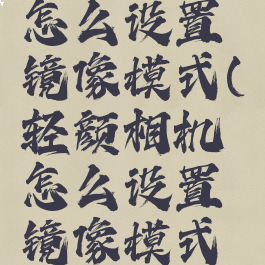 怎么设置
镜像模式(
轻颜相机
怎么设置
镜像模式